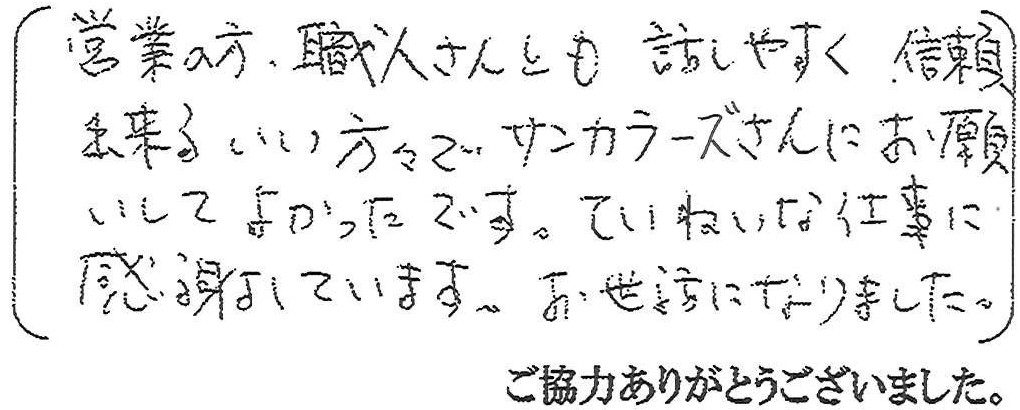 営業の方、職人さんとも 話しやすく 信頼
出来る いい 方々で サンカラーズさんに お願
いして よかったです。ていねいな仕事に
感謝しています。お世話になりました。
ご協力ありがとうございました。